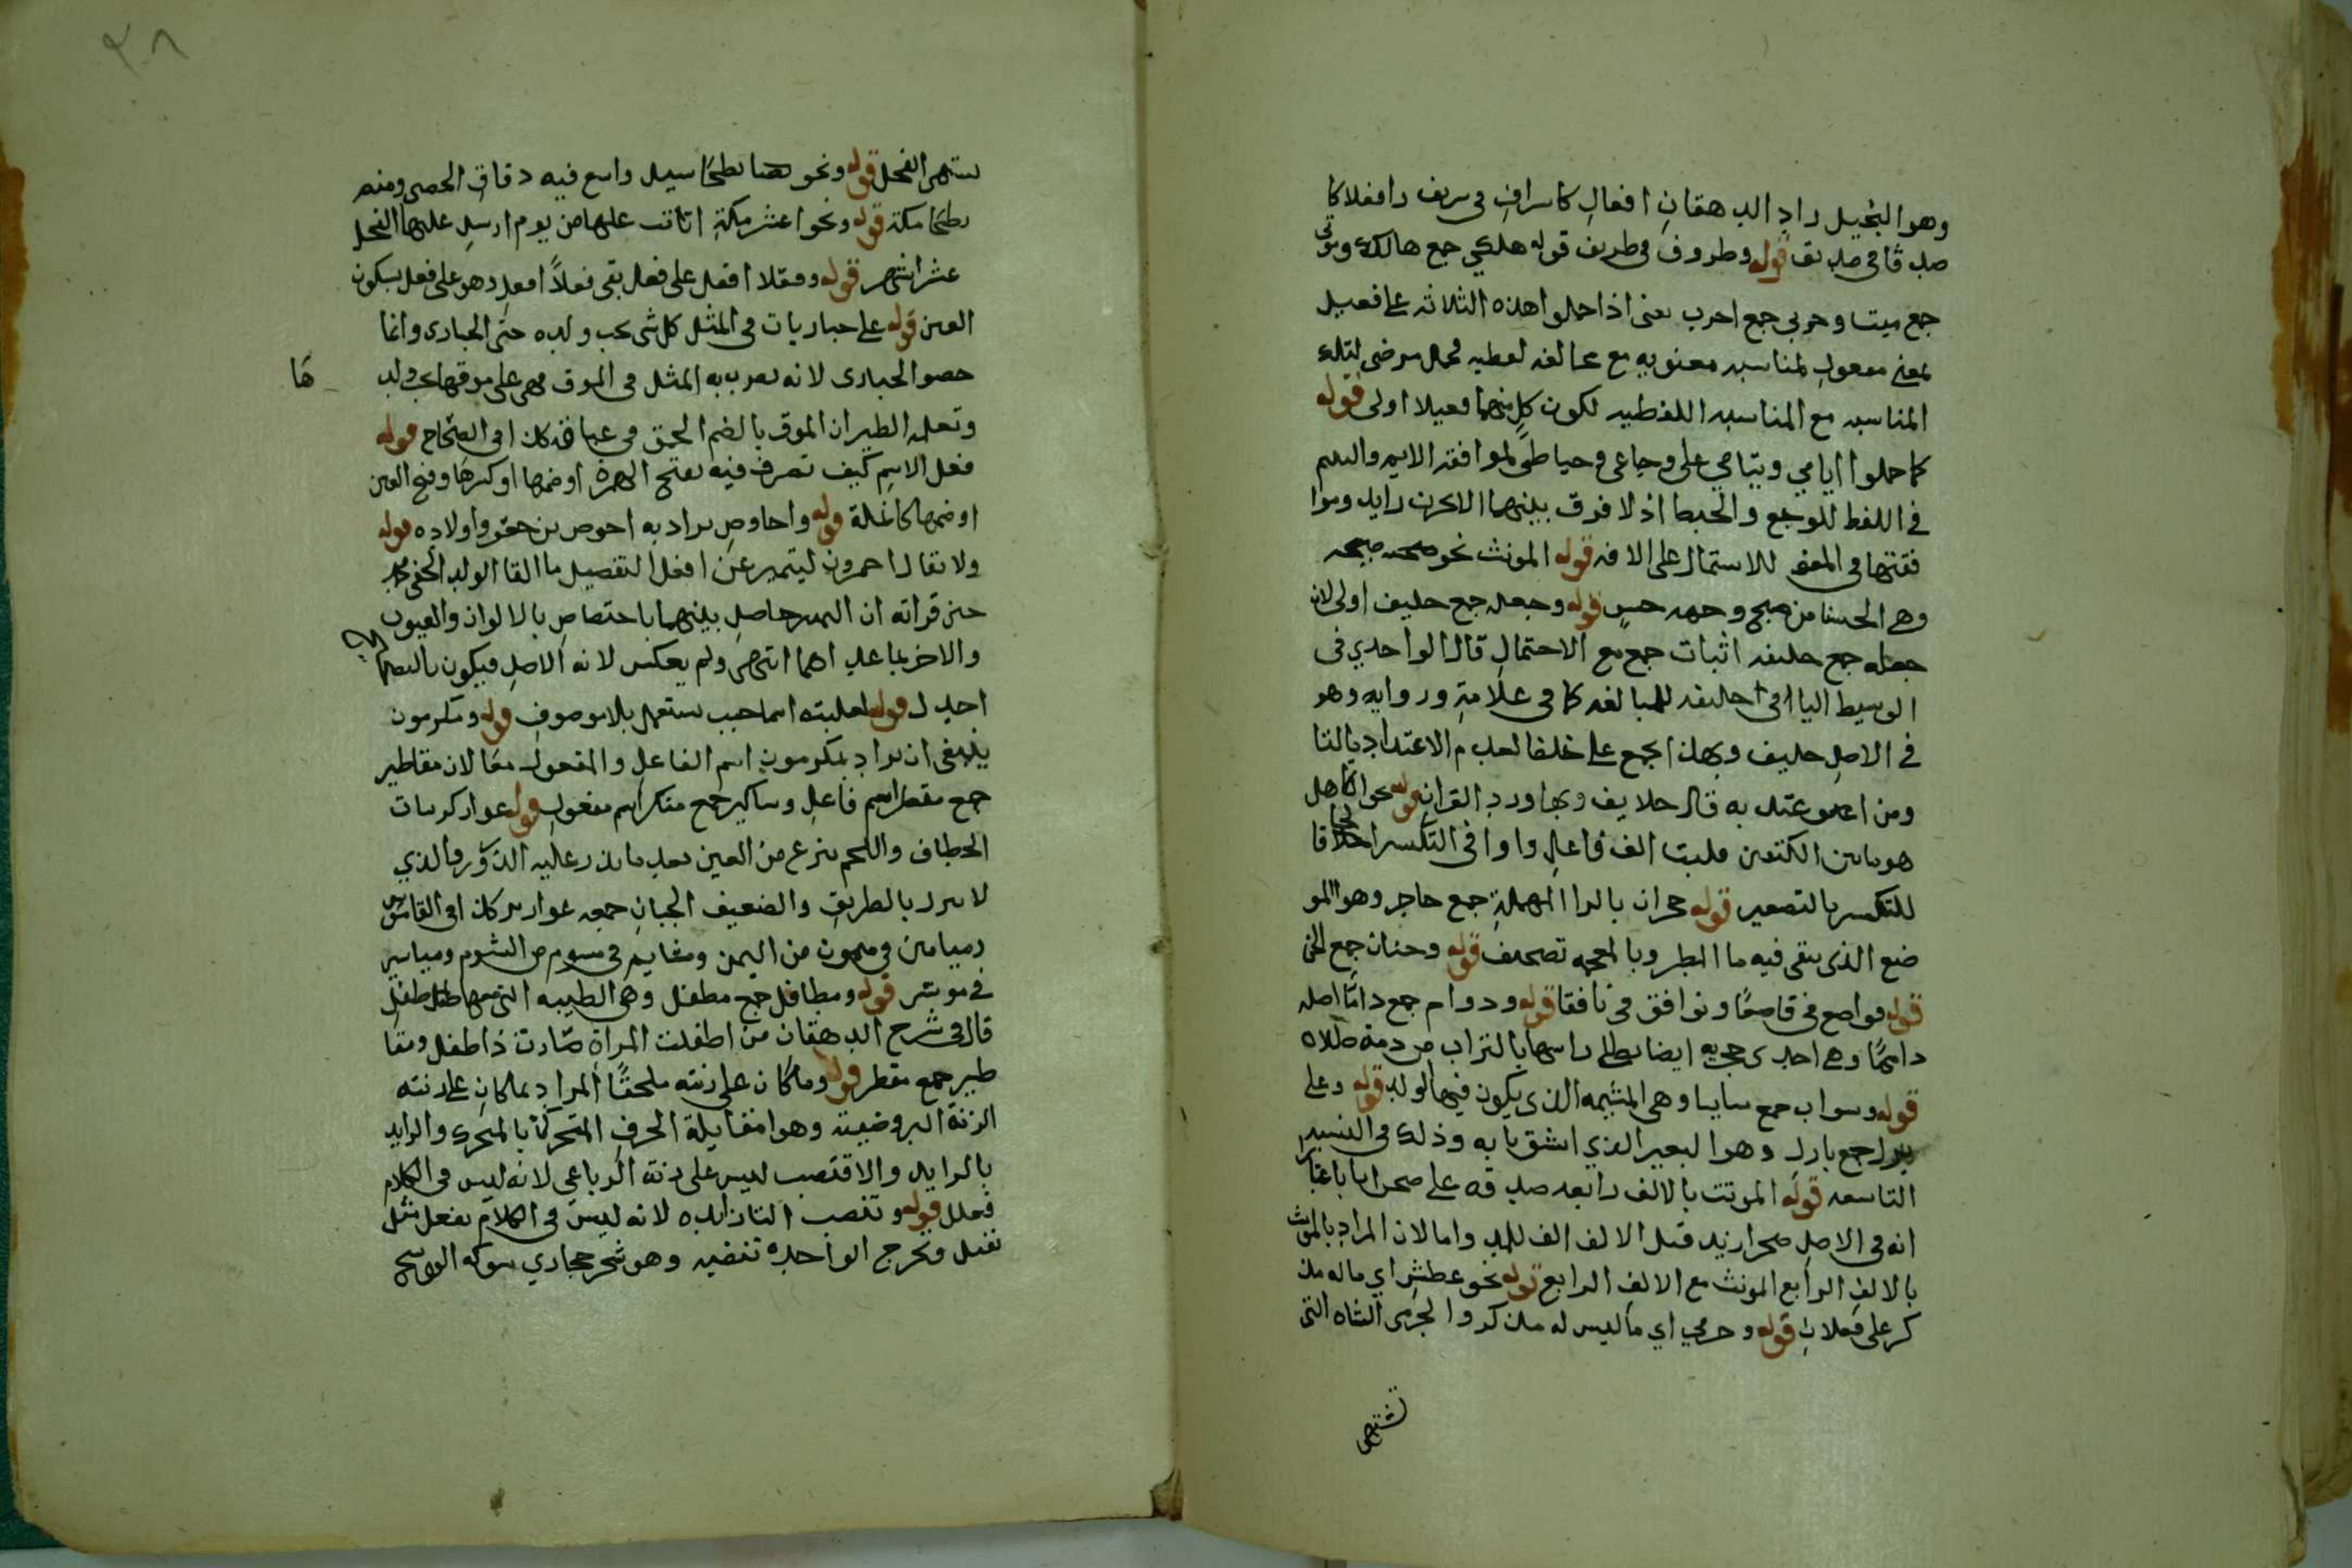 وهو البخيل زاد الدهقان افعال كاشراف في شريف وافعلا كا
صدقا في صديق قوله وظروف في ظريف قوله هلكى جمع هالك وموتى
جمع ميت وجربى جمع اجرب يعنى اذا حملوا هذه الثلاثة على فعيل
بمعنى مفعول لمناسبه معنويه مع مخالفه لفظيه فحمل مرضى لتلك
المناسبه مع المناسبه اللفظيه لكون كل منهما فعيلا اولى قوله
كما حملوا ايامى ويتامى على وجاعى وحباطى لموافقه الايم واليتيم
في اللفظ للوجع والحبط اذ لا فرق بينهما الا بحرف زايد
في المعنى للاشتمال على الافه قوله المونث نحو صبيحه
وهي الحسنا من صبح وجهه حسن قوله وجعله جمع خليف اولى لان
جعله جمع خليفه اثبات جمع مع الاحتمال قال الواحدي في
الوسيط اليا في خليفه للمبالغه كما في علامة وروايه وهو
في الاصل خليف وبهذا يجمع على خلفا لعدم الاعتداد بالتا
ومن اعتد به قال خلايف وبها ورد القران قوله نحو الكاهل
هو ما بين الكتفين قلبت الف فاعل واوا في التكسير الحاقا
للتكسير بالتصغير قوله حجران بالرا المهملة جمع حاجر وهو المو
ضع الذى يبقى فيه ما المطر وبالمعجمه تصحيف قوله وجنان جمع الجن
قوله قواصع في قاصعا ونوافق في نافقا قوله ودوام جمع داما اصله
دامما وهي احدى جحريه ايضا يطلى راسها بالتراب من دمه طلاه
قوله وسواب جمع سابيا وهي المشيمه الذي يكون فيها الولد قوله وعلى
بزل جمع بازل وهو البعير الذي انشق نابه وذلك في السنة
التاسعه قوله المونث بالالف رابعه صدقه على صحرا باعتبا
انه في الاصل صحرا زيد قبل الالف الف للمد واما لان المراد بالمونث
بالالف الرابع المونث مع الالف الرابع قوله نحو عطشى اي ماله مذ
كر على فعلان قوله وحرمى اي ما ليس له مذكر والحرمى الشاه التى
تشتهى
٣٨
تشتهى الفحل قوله ونحو بطحا سيل واسع فيه دقاق الحصى ومنه
بطحا مكة قوله ونحو عشر اتت عليها من يوم ارسل عليها الفحل
عشرا اشهر قوله وفعلا افعل على فعل بقى فعلاً افعل وهو على فعل بسكون
العين قوله على حباريات في المثل كل شى يحب ولده حتى الحبارى وانما
خصوا الحبارى لانه يضرب به المثل في الموق فهى على موقها تحب ولد
ها
وتعلمه الطيران الموق بالضم الحمق في غباوة كذا في الصحاح قوله
فعل الاسم كيف تصرف فيه بفتح الهمزة او ضمها او كسرها وفتح العين
او ضمها كانملة قوله واحاوص يراد به احوص بن جعفر واولاده قوله
ولا يقال احمرون ليتميز عن افعل التفضيل
قراته ان التميز حاصل بينهما باختصاص بالالوان والعيوب
والاخر بما عداهما انتهى ولم يعكس لانه الاصل فيكون
اجدل قوله لغلبته اسما حيث يستعمل بلا موصوف قوله ومكرمون
ينبغى ان يراد بمكرمون اسم الفاعل والمفعول معا لان مقاطير
جمع مقطر اسم فاعل ومناكير جمع منكر اسم مفعول قوله عوار كرمان
الخطاف واللحم ينزع من العين بعد ما يذر عليه الذرور والذي
لا بالطريق والضعيف الجبان جمعه عواوير كذا في القاموس
وميامين في ميمون من اليمن ومشايم في مشوم من الشوم ومياسير
في موسر قوله ومطافل جمع مطفل وهى الظبيه التى معها طفل
قال في شرح الدهقان من اطفلت المراة صارت ذا طفل ومقا
طير جمع مقطر قوله وما كان على زنته ملحقًا المراد بما كان على زنته
الزنة العروضيه وهو مقابلة الحرف المتحرك بالمتحرك والزايد
بالزايد والا فتنضب ليس على زنة الرباعى لانه ليس في الكلام
فعلل قوله وتنضب التا زايده لانه ليس في الكلام فعلل مثل
تفعل وتخرج الواحده تنضبه وهو شجر حجازي شوكه